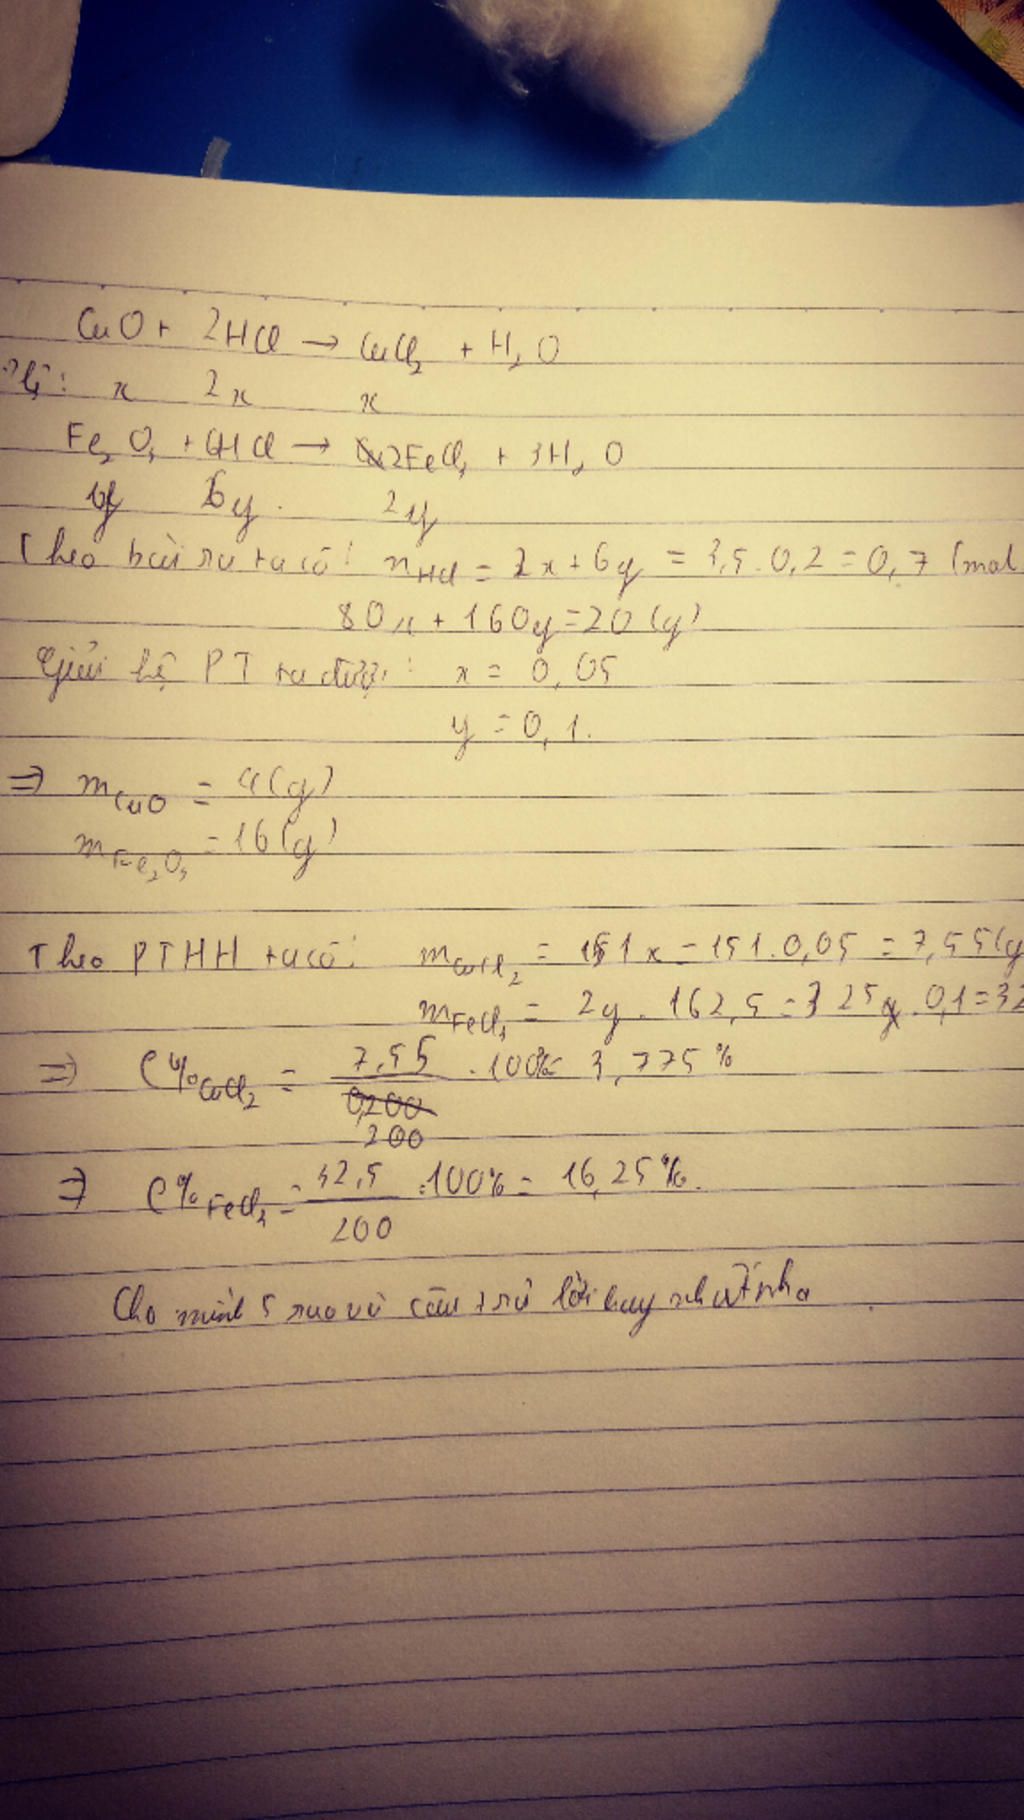 CuO + 2HCl → CuCl₂ + H₂O
x 2x x
Fe₂O₃ + 6HCl → 2FeCl₃ + 3H₂O
y 6y 2y
Theo bài ra ta có: nHCl = 2x + 6y = 3,5.0,2 = 0,7 (mol
80x + 160y = 20 (g)
Giải hệ PT ta được: x = 0,05
y = 0,1.
⇒ mCuO = 4(g)
mFe₂O₃ = 16(g)
Theo PTHH ta có: mCuCl₂ = 151x = 151.0,05 = 7,55(g
mFeCl₃ = 2y.162,5 = 325.0,1 = 32
⇒ C%CuCl₂ = 7,55/200 .100% = 3,775%
⇒ C%FeCl₃ = 32,5/200 .100% = 16,25%.
Cho mình 5 sao và câu trả lời hay nhất nha